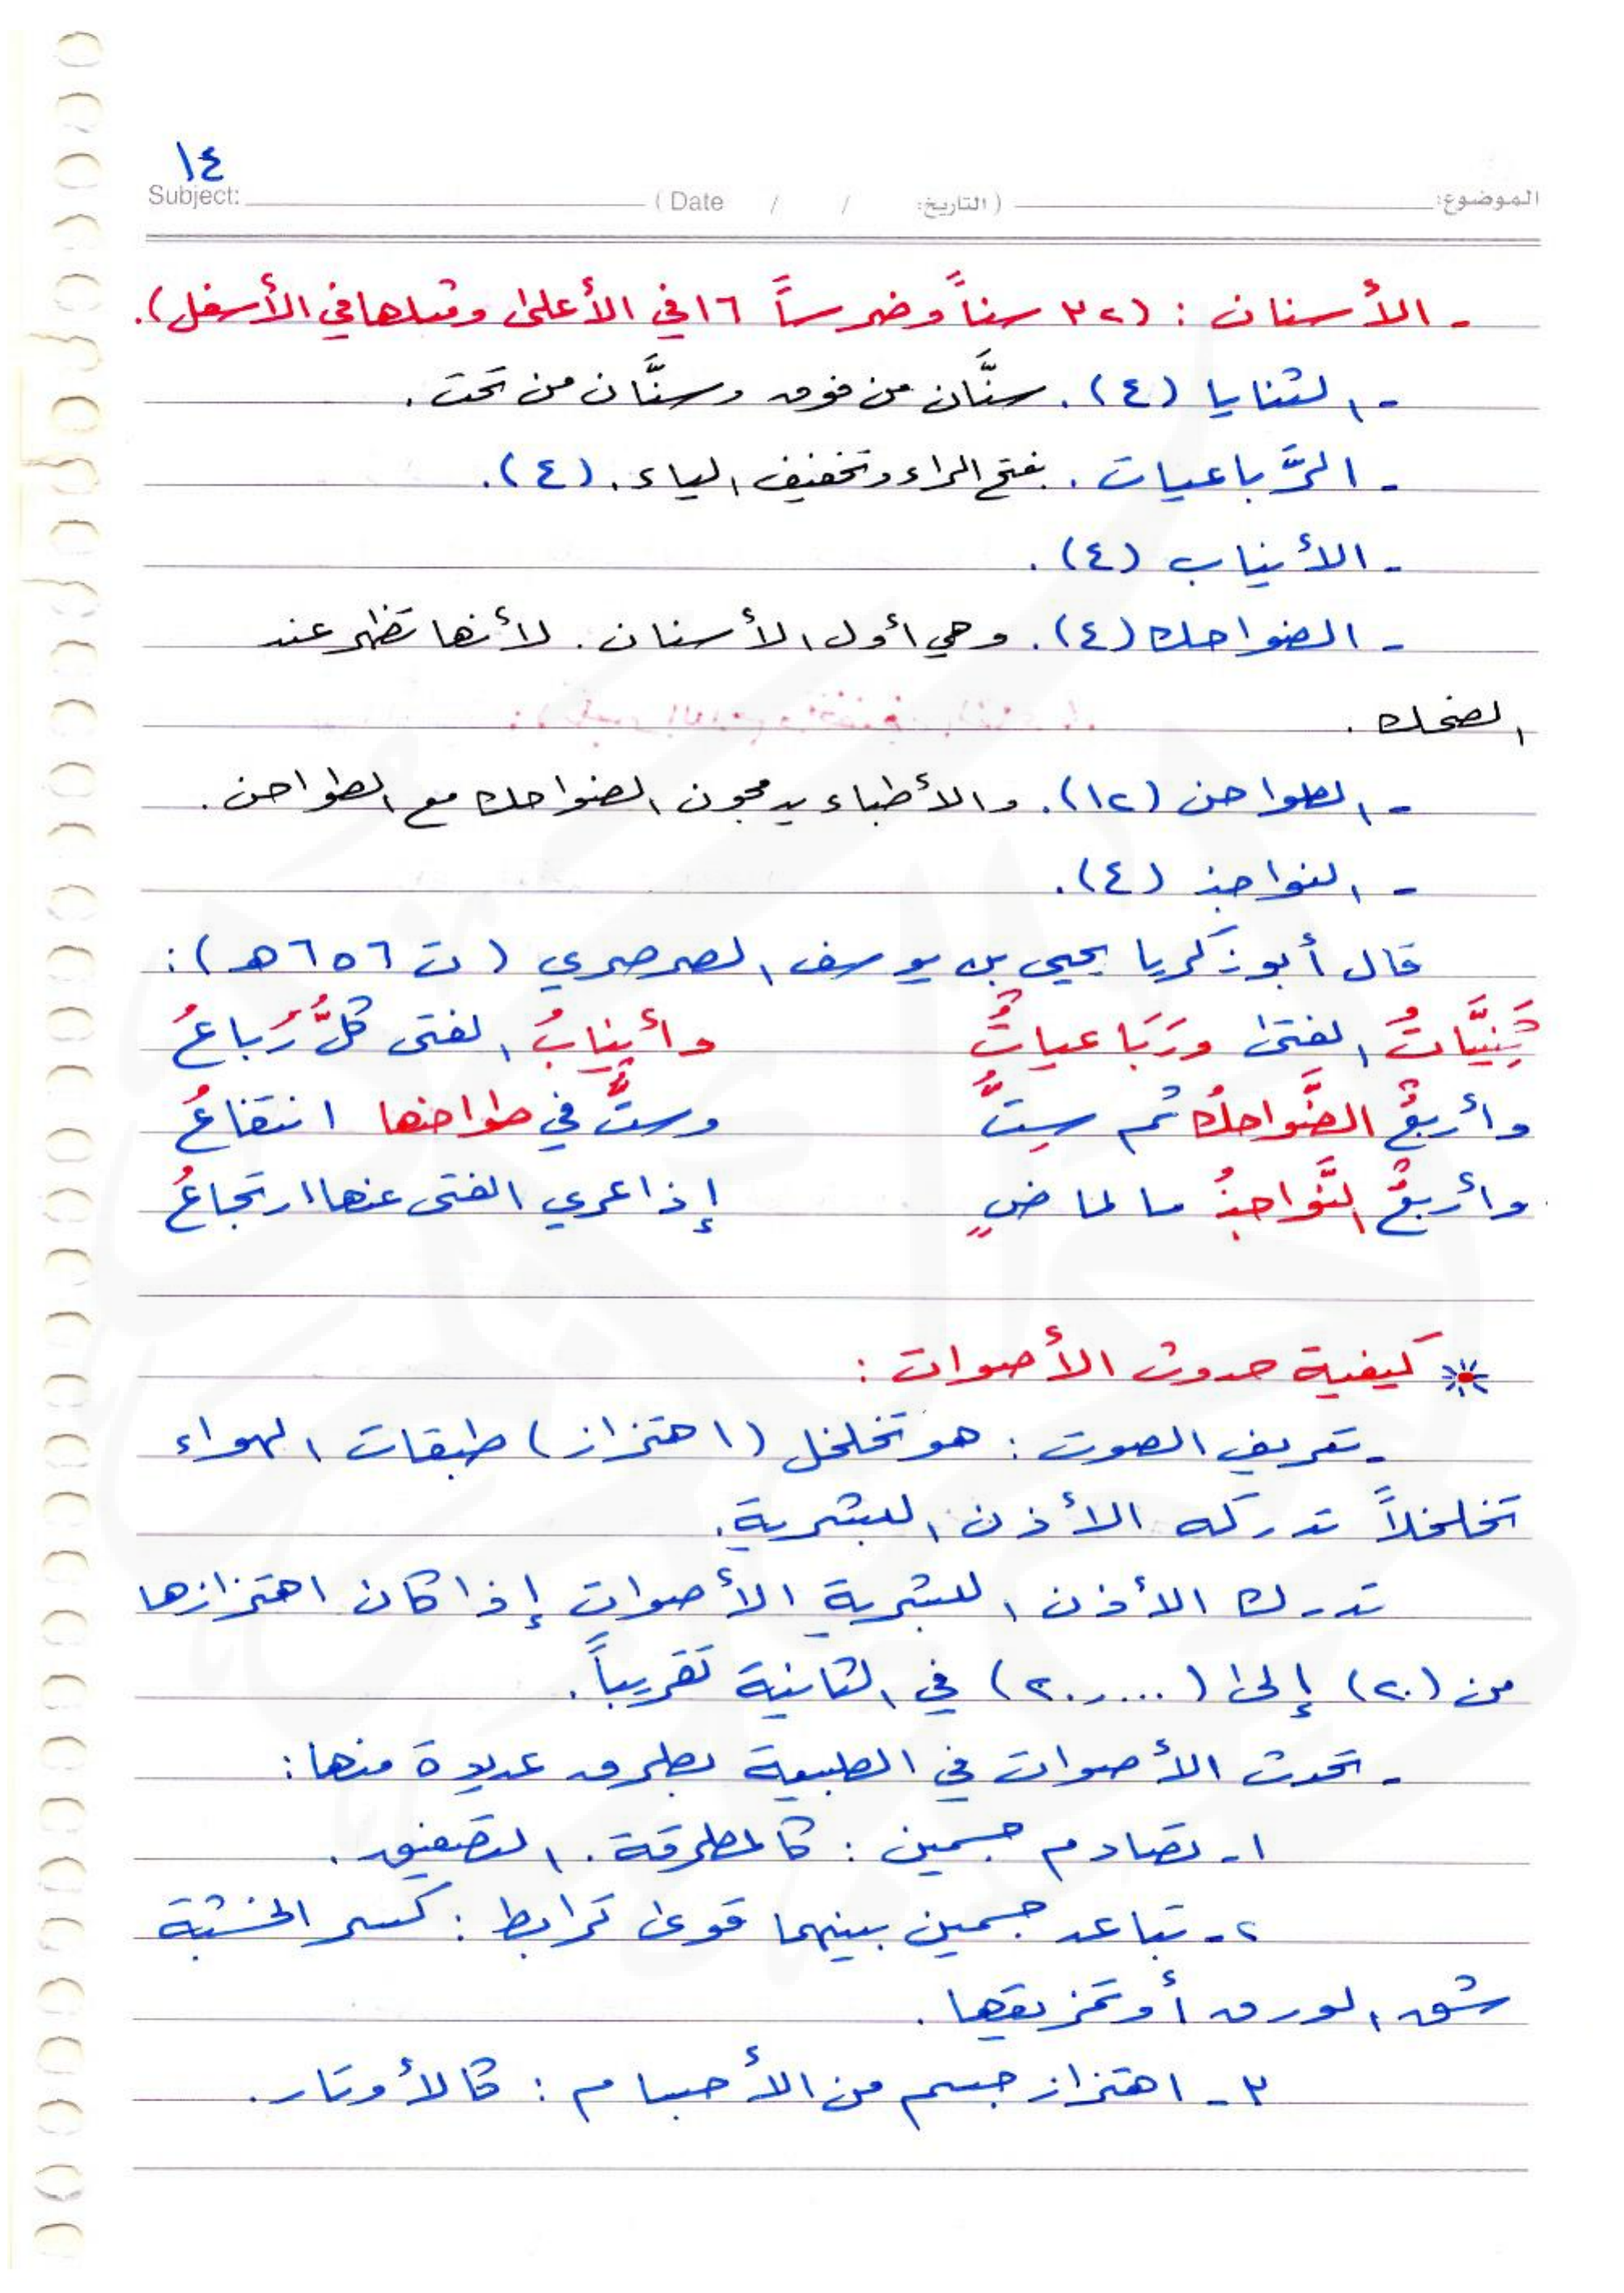 ١٤
Subject: ( Date / / التاريخ: ) الموضوع:
- الأسنان : (٣٢ سناً وضرساً ١٦ في الأعلى ومثلها في الأسفل).
- الثنايا (٤). سنَّان من فوق وسنَّان من تحت.
- الرَّباعيات. بفتح الراء وتخفيف الياء. (٤).
- الأنياب (٤).
- الضواحك (٤). وهي أول الأسنان. لأنها تظهر عند
الضحك.
- الطواحن (١٢). والأطباء يدمجون الضواحك مع الطواحن.
- النواجذ (٤).
قال أبو زكريا يحيى بن يوسف الصرصري (ت ٦٥٦ هـ):
ثَنِيَّاتُ الفتى ورَبَاعياتٌ وأنيابُ الفتى كلٌّ رُباعُ
وأربعٌ الضَّواحكُ ثم سِتٌّ وستٌّ في طواحنها انتفاعُ
وأربعٌ النَّواجذُ ما لماضٍ إذا عري الفتى عنها ارتجاعُ
كيفية حدوث الأصوات :
- تعريف الصوت : هو تخلخل (اهتزاز) طبقات الهواء
تخلخلاً تدركه الأذن البشرية.
تدرك الأذن البشرية الأصوات إذا كان اهتزازها
من (٢٠) إلى (٢٠,٠٠٠) في الثانية تقريباً.
- تحدث الأصوات في الطبيعة بطرق عديدة منها:
١- تصادم جسمين : كالمطرقة. التصفيق.
٢- تباعد جسمين بينهما قوى ترابط : كسر الخشبة
شق الورق أو تمزيقها.
٣- اهتزاز جسم من الأجسام : كالأوتار.